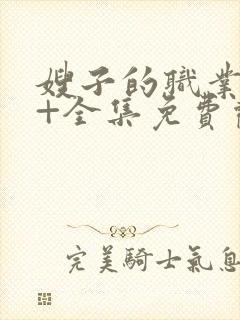 嫂子的職業
+全集免費
完美騎士氣息